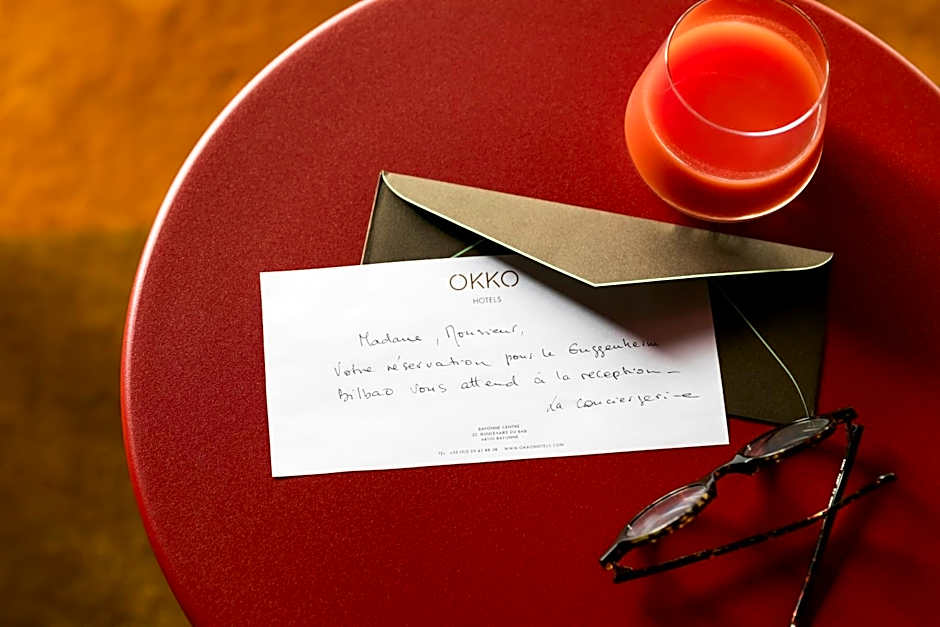 OKKO
HOTELS
Madame, Monsieur,
Votre réservation pour le Guggenheim
Bilbao vous attend à la reception –
La conciergerie
BAYONNE CENTRE
BOULEVARD DU BAB
64100 BAYONNE
TEL WWW.OKKOHOTELS.COM